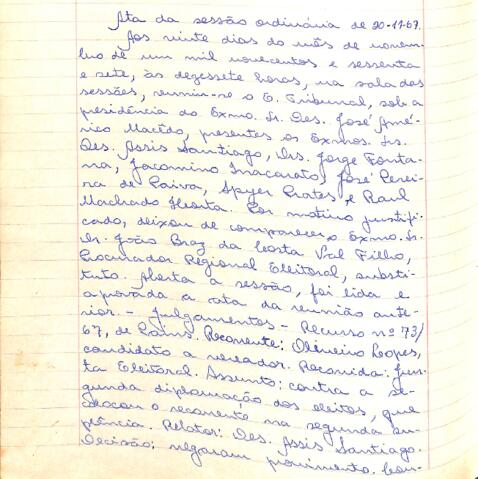 Ata da sessão ordinária de 20-11-67.
Aos vinte dias do mês de novem-
bro de um mil novecentos e sessenta
e sete, às dezessete horas, na sala das
sessões, reuniu-se o E. Tribunal, sob a
presidência do Exmo. Sr. Des. José Amé-
rico Macêdo, presentes os Exmos. Srs.
Des. Assis Santiago, Drs. Jorge Fonta-
na, Jacomino Inacarato, José Perei-
ra de Paiva, Apyer Prates e Raul
Machado Horta. Por motivo justifi-
cado, deixou de comparecer o Exmo. Sr.
Dr. João Braz da Costa Val Filho,
Procurador Regional Eleitoral, substi-
tuto. Aberta a sessão, foi lida e
aprovada a ata da reunião ante-
rior. - Julgamentos - Recurso nº 73/
67, de Pains. Recorrente: Olineiro Lopes,
candidato a vereador. Recorrida: Jun-
ta Eleitoral. Assunto: contra a se-
gunda diplomação dos eleitos, que
colocou o recorrente na segunda su-
plência. Relator: Des. Assis Santiago.
Decisão: negaram provimento. Con-